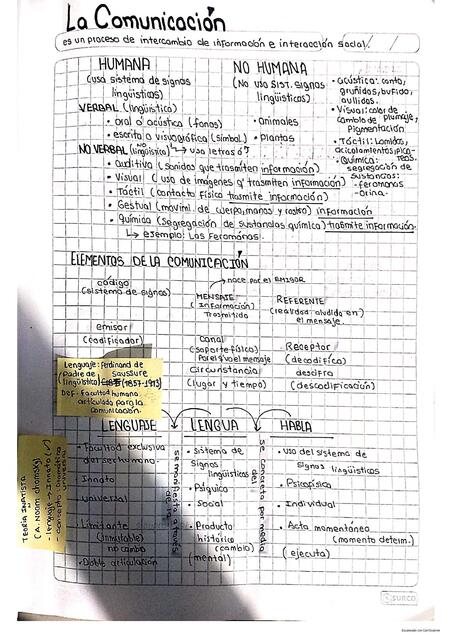 La Comunicación
es un proceso de intercambio de información e interacción social.
HUMANA
(usa sistema de signos
lingüísticos)
VERBAL (lingüística)
• oral o acústica (fonos)
• escrita o visuográfica (símbol.)
NO VERBAL (no lingüística) ↳ usa letras
• Auditiva (sonidos que trasmiten información)
• Visual (uso de imágenes q' trasmiten información)
• Táctil (contacto físico trasmite información)
• Gestual (movimi. de cuerpo, manos y rostro) información
• Química (segregación de sustancias química) trasmite información.
↳ ejemplo: Las Feromonas.
NO HUMANA
(No usa SIST. signos
lingüísticos)
• Animales
• Plantas
• Acústica: canto,
gruñidos, bufido,
aullidos.
• Visual: color de
cambio de plumaje,
Pigmentación
• Táctil: Lamidos,
• Química:
segregación de
sustancias:
- feromonas
- Orina.
ELEMENTOS DE LA COMUNICACIÓN
código
(sistema de signos)
→ nace por el EMISOR
MENSAJE
(Información)
Trasmitida
REFERENTE
(realidad aludida en)
el mensaje.
emisor
(codificador)
canal
(soporte físico)
Receptor
(decodifica)
circunstancia
(lugar y tiempo)
descifra
(descodificación)
Lenguaje: Ferdinand de
(Padre de Saussure
lingüística) (1857-1913)
DEF. Facultad humana
articulada para la
comunicación.
LENGUAJE
• Facultad exclusiva
del ser humano.
• Innato
• Universal
• Limitante
(Inmutable)
no cambia
• Doble articulación
se manifiesta a través
LENGUA
• Sistema de
Signos
lingüísticos
• Psíquico
• Social
• Producto
histórico
(cambio)
(mental)
se concreta por medio
HABLA
• Uso del sistema de
signos lingüísticos
• Psicofísica
• Individual
• Acto momentáneo
(momento determ.)
(ejecuta)
TEORÍA INNATISTA
(A. Noam chomsky)
- lenguaje → Innato (✓)
SURCO
Escaneado con CamScanner